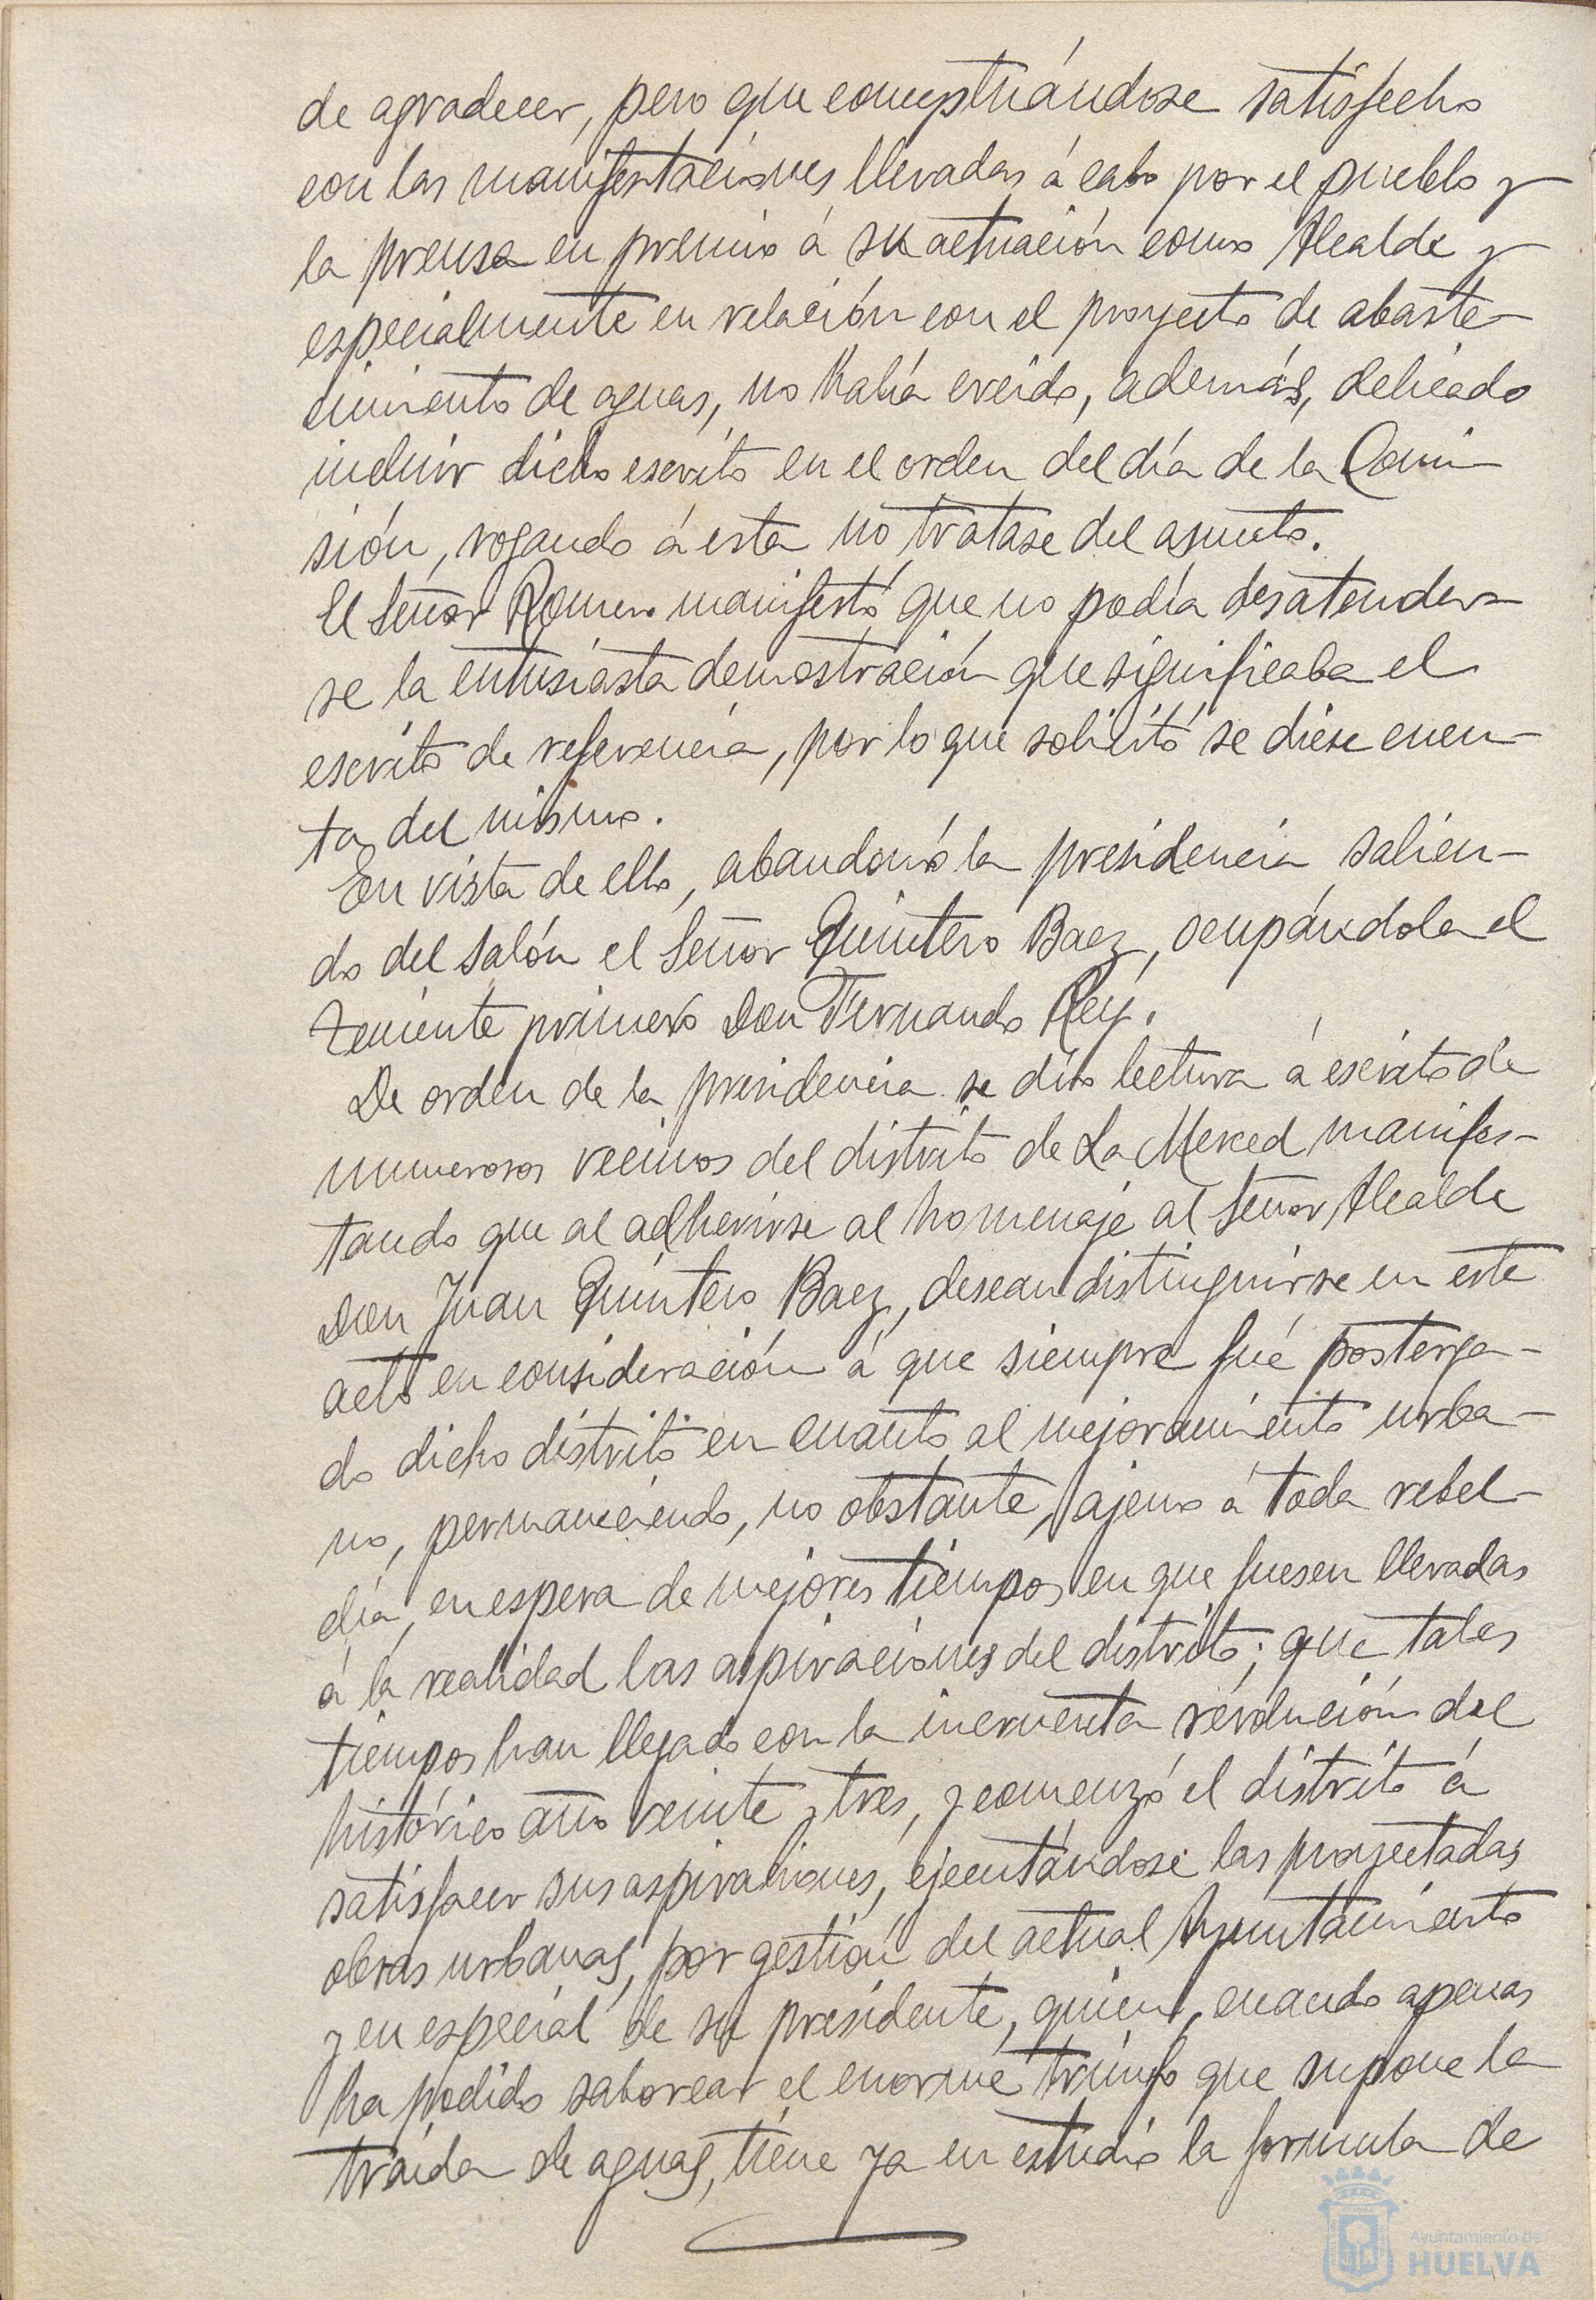 de agradecer, pero que conceptuándose satisfecho
con las manifestaciones llevadas á cabo por el pueblo y
la prensa en premio á su actuación como Alcalde y
especialmente en relación con el proyecto de abaste-
cimiento de aguas, no había creido, además, delicado
incluir dicho escrito en el orden del día de la Comi-
sión, rogando á esta no tratase del asunto.
El Señor Romero manifestó que no podía desatender-
se la entusiasta demostración que significaba el
escrito de referencia, por lo que solicitó se diese cuen-
ta del mismo.
En vista de ello, abandonó la presidencia salien-
do del salón el Señor Quintero Baez, ocupándola el
teniente primero Don Fernando Rey.
De orden de la presidencia se dió lectura á escrito de
numerosos vecinos del distrito de La Merced manifes-
tando que al adherirse al homenaje al Señor Alcalde
Don Juan Quintero Baez, desean distinguirse en este
acto en consideración á que siempre fué posterga-
do dicho distrito en cuanto al mejoramiento urba-
no, permaneciendo, no obstante, ajeno á toda rebel-
día, en espera de mejores tiempos en que fuesen llevadas
á la realidad las aspiraciones del distrito; que tales
tiempos han llegado con la incruenta revolución del
histórico año veinte y tres, y comenzó el distrito á
satisfacer sus aspiraciones, ejecutándose las proyectadas
obras urbanas, por gestión del actual Ayuntamiento
y en especial de su presidente, quien, cuando apenas
ha podido saborear el enorme triunfo que supone la
traída de aguas, tiene ya en estudio la formula de
Ayuntamiento de
HUELVA